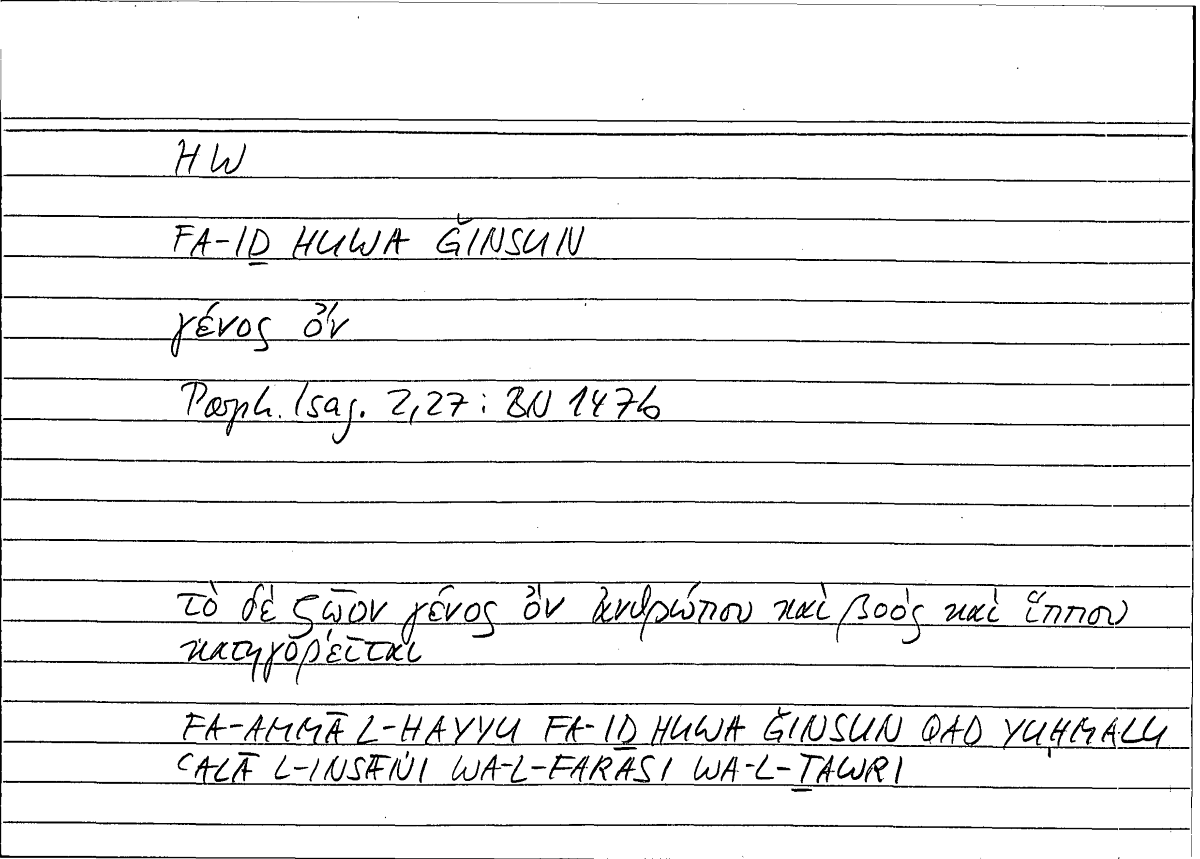 HW
FA-IḎ HUWA ǦINSUN
γένος ὄν
Porph. Isag. 2,27 : BN 147b
τὸ δὲ ζῷον γένος ὂν ἀνθρώπου καὶ βοὸς καὶ ἵππου
κατηγορεῖται
FA-AMMĀ L-HAYYU FA-IḎ HUWA ǦINSUN QAD YUḤMALU
ʿALĀ L-INSĀNI WA-L-FARASI WA-L-ṮAWRI